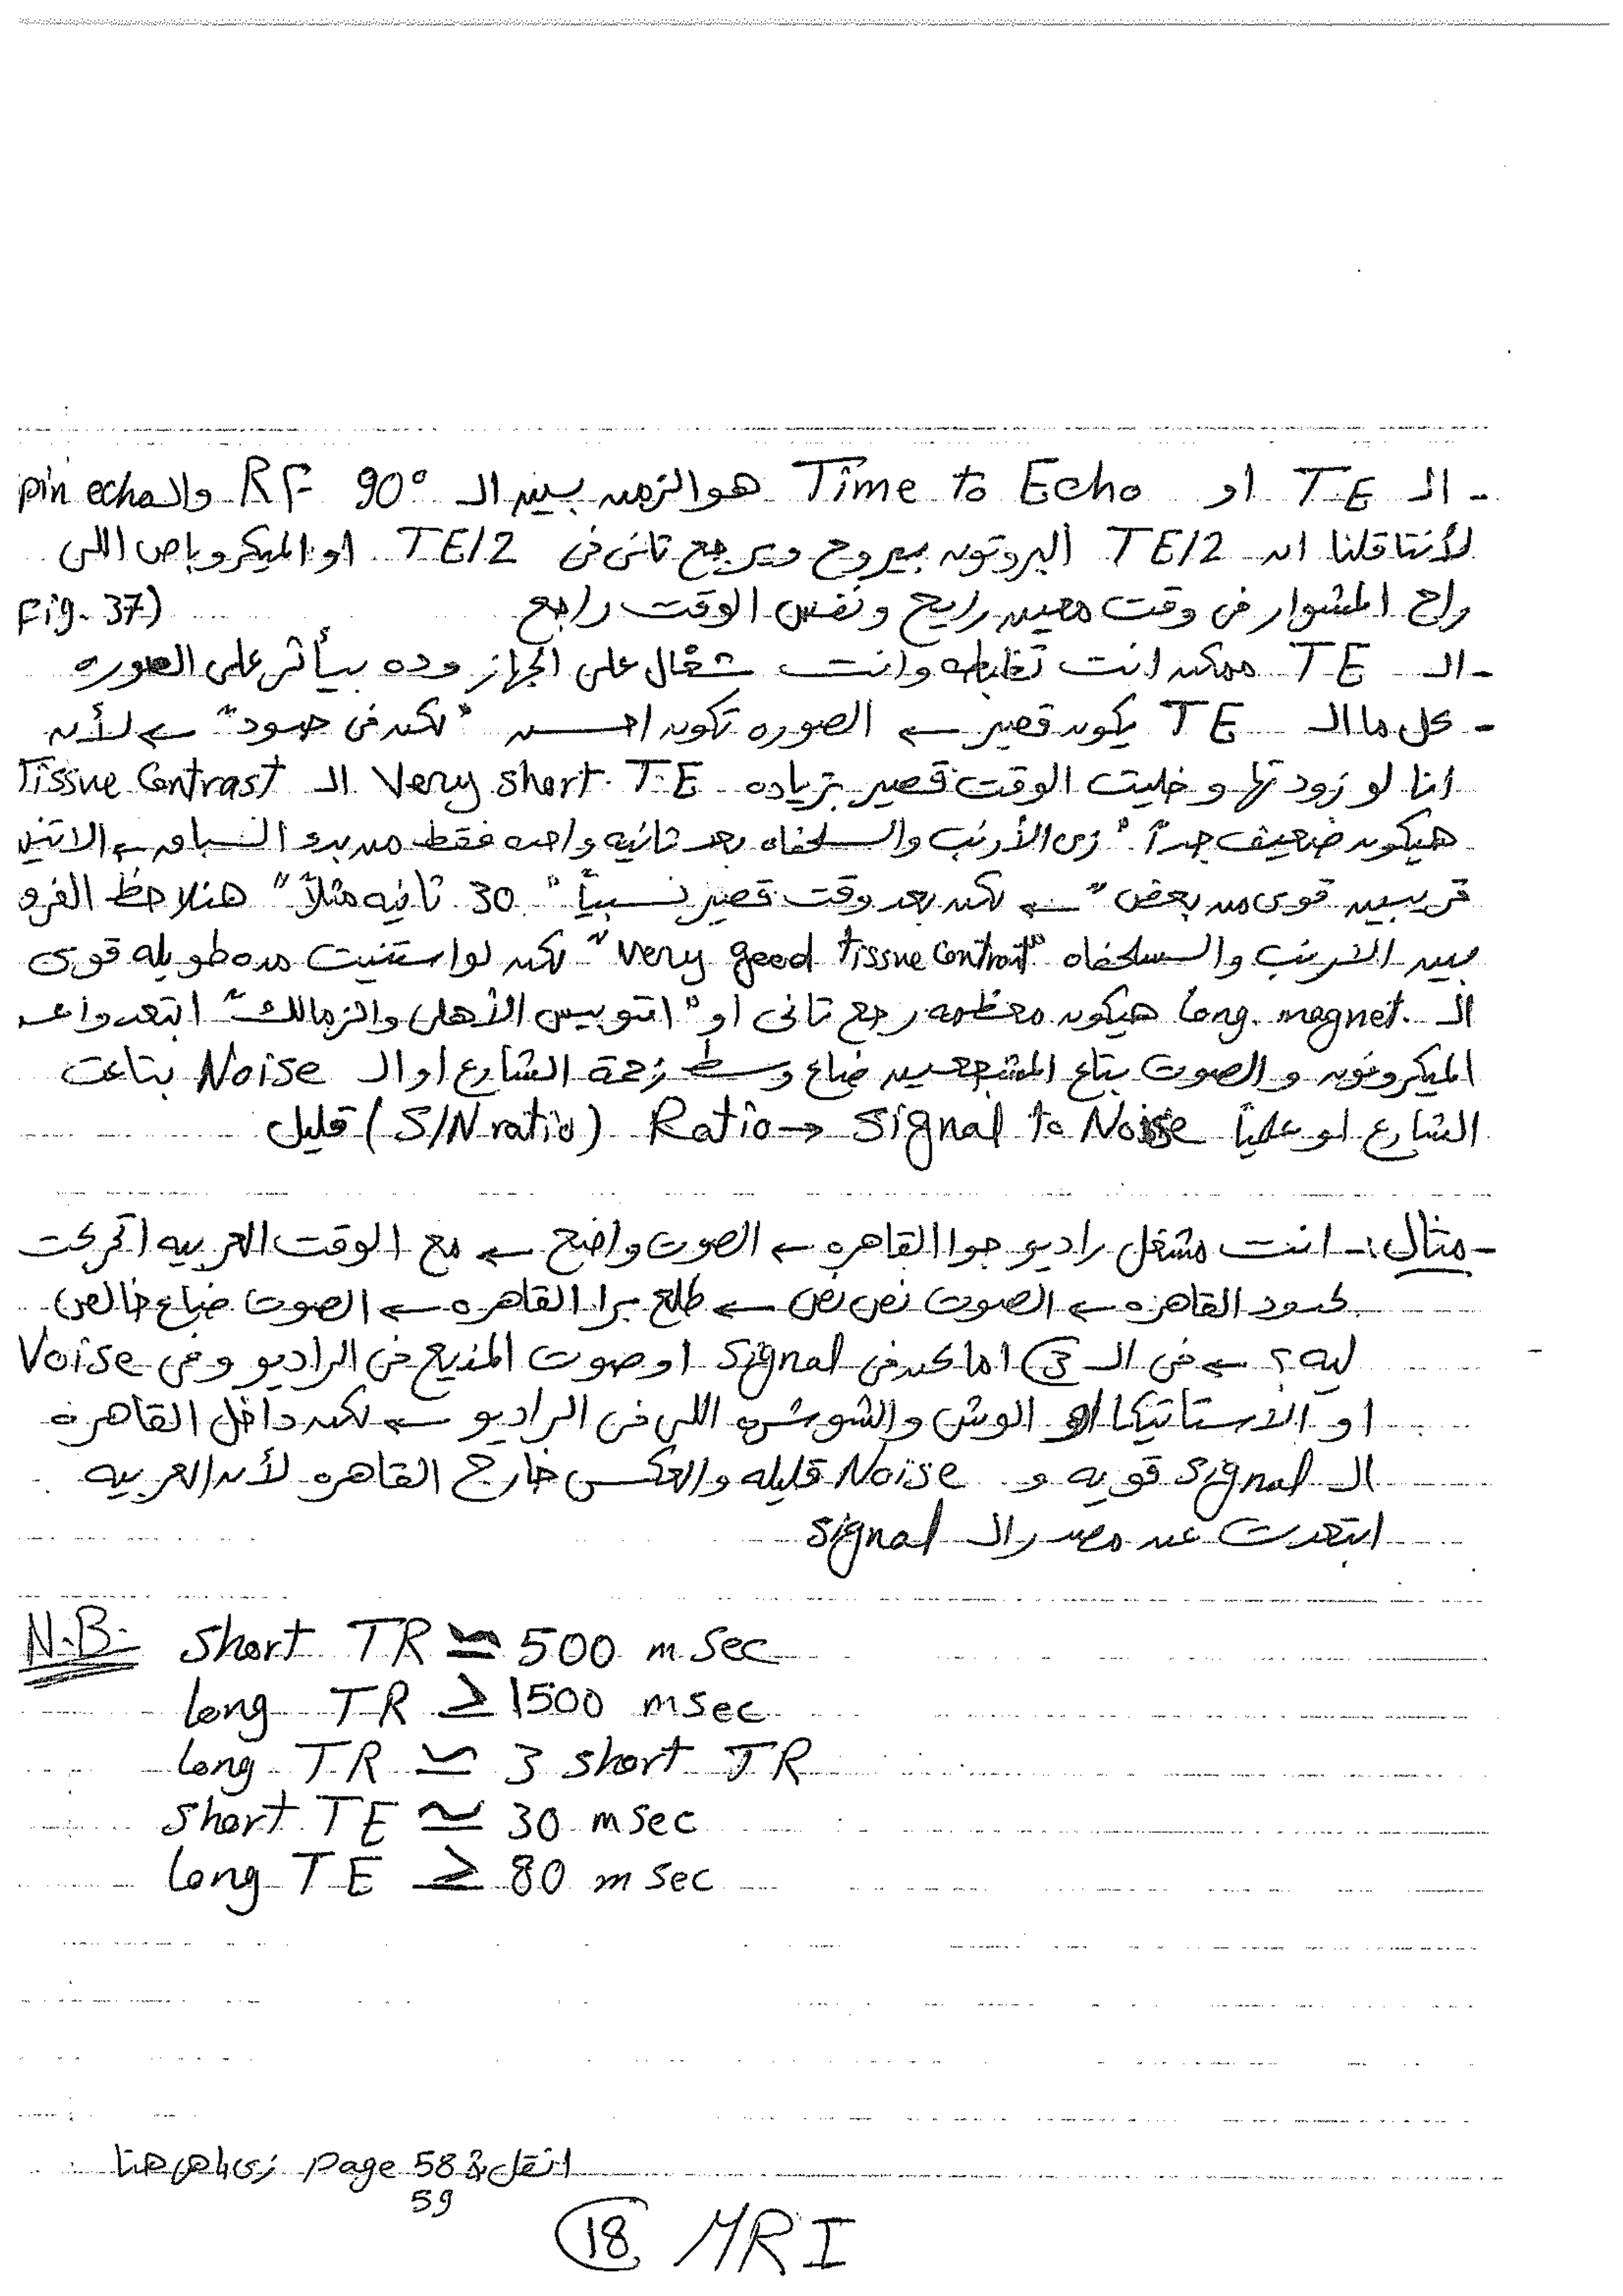 - الـ TE او Time to Echo هو الزمن بين الـ 90° RF والـ pin echo
لأننا قلنا ان TE/2 البروتون بيروح ويرجع تانى فى TE/2 او الميكروباص اللى
راح المشوار فى وقت معين رايح ونفس الوقت راجع (Fig. 37
- الـ TE ممكن انت تظبطه وانت شغال على الجهاز وده بيأثر على الصوره
- كل ما الـ TE يكون قصير ← الصوره تكون احسن "لكن فى حدود" ← لأن
انا لو زودتها و خليت الوقت قصير بزياده Very short TE الـ Tissue Contrast
هيكون ضعيف جداً "زى الأرنب والسلحفاه بعد ثانيه واحده فقط من بدء السباق ← الاتنين
قريبين قوى من بعض" ← لكن بعد وقت قصير نسبياً "30 ثانيه مثلاً" هنلاحظ الفرق
بين الارنب والسلحفاه "very good tissue contrast" لكن لو استنيت مده طويله قوى
الـ Long. magnet. هيكون معظمه رجع تانى او "اتوبيس الأهلى والزمالك" ابتعدوا عن
الميكروفون والصوت بتاع المشجعين ضاع وسط زحمة الشارع او الـ Noise بتاعت
الشارع او علمياً Ratio → Signal to Noise (S/N ratio) قليل
- مثال :- انت مشغل راديو جوا القاهره ← الصوت واضح ← مع الوقت العربيه اتحركت
لحدود القاهره ← الصوت نص نص ← طلع برا القاهره ← الصوت ضاع خالص
ليه ؟ ← فى الـ 3 اماكن فى signal او صوت المذيع فى الراديو وفى Noise
او الاستاتيكا او الوش والشوشره اللى فى الراديو ← لكن داخل القاهرة
الـ signal قويه و Noise قليله والعكس خارج القاهره لأن العربيه
ابتعدت عن مصدر الـ signal
N.B. short TR ≃ 500 m sec
long TR ≥ 1500 msec
long TR ≃ 3 short TR
short TE ≃ 30 msec
long TE ≥ 80 m sec
انقل page 58 & زى ما هى هنا
59
18 MRI